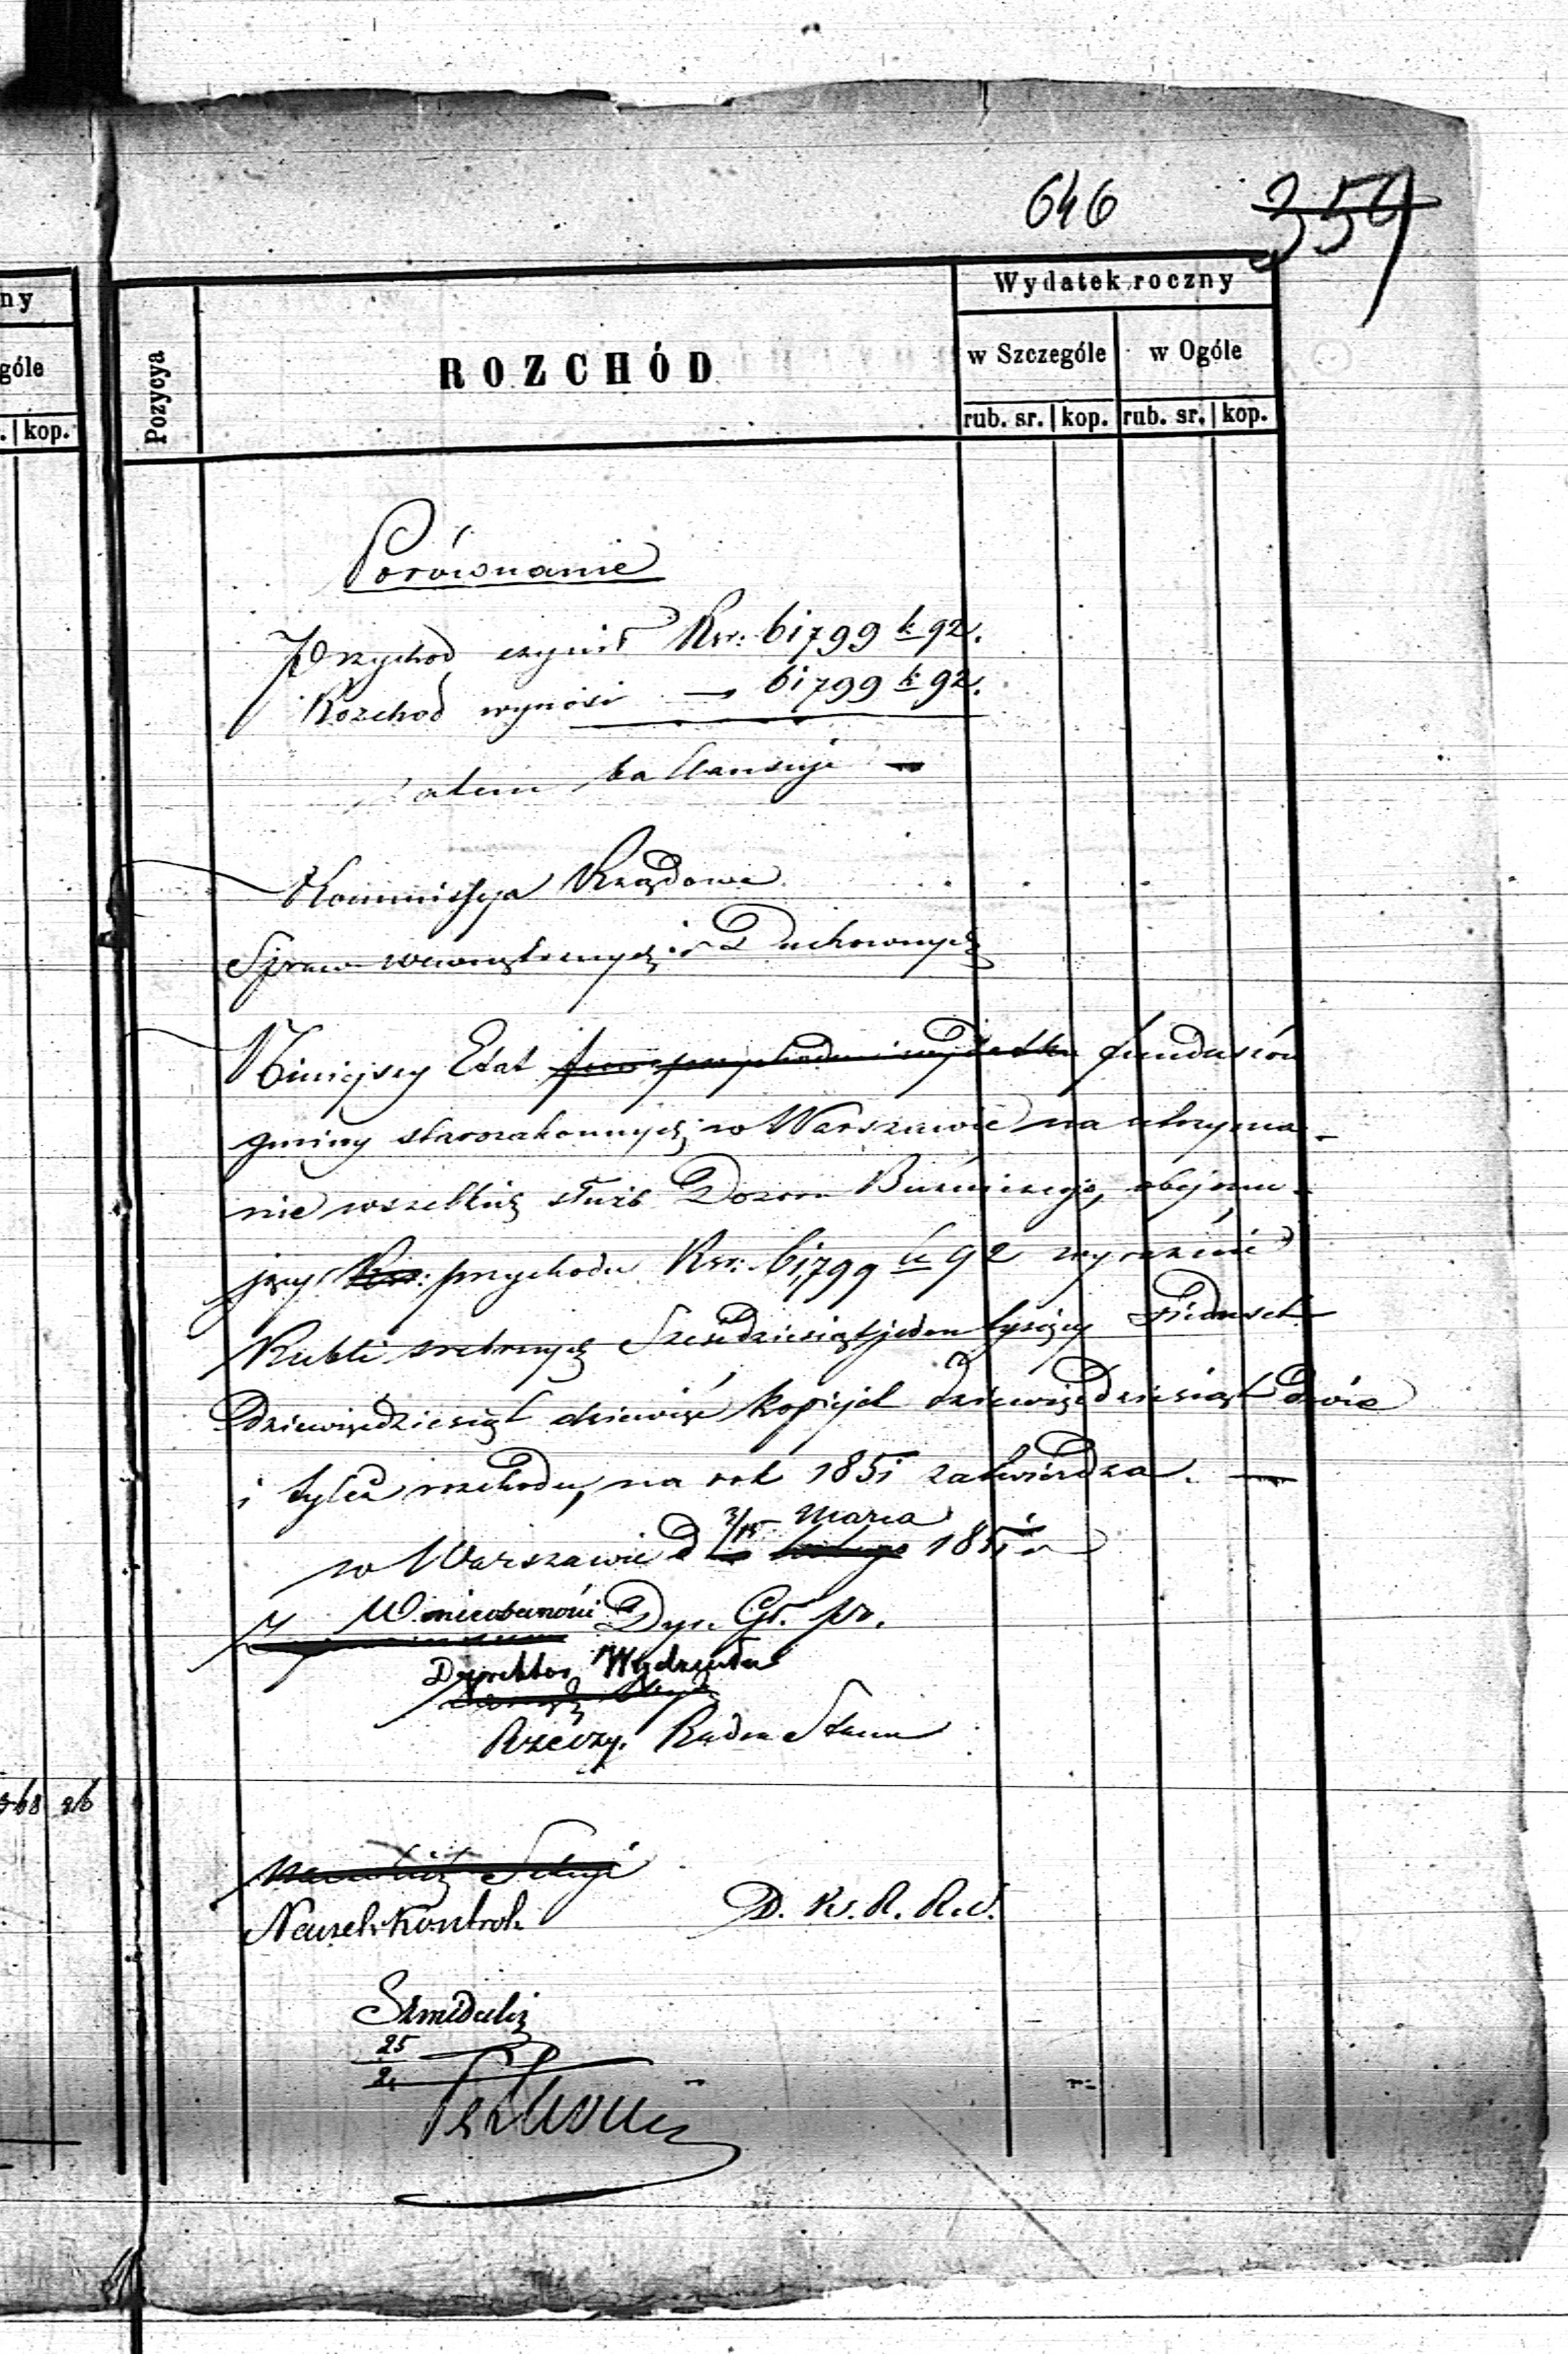 646 359
ny
góle
. kop.
Pozycya
ROZCHÓD
Wydatek roczny
w Szczególe w Ogóle
rub. sr. kop. rub. sr. kop.
Porównanie
Przychod czyni Rsr: 61799 k 92.
Rozchod wynosi — 61799 k 92.
Zatem ballansuje —
Kommissya Rządowa
Spraw wewnętrznych i Duchownych
Niniejszy Etat funduszów
gminy starozakonnych w Warszawie na utrzyma-
nie wszelkich służb Dozoru Bóżniczego, obejmu-
jący Rsr: przychodu Rsr: 61,799 k 92 wyraźnie
Rubli srebrnych Sześćdziesiąt jeden tysięcy Siedmset
Dziewięćdziesiąt dziewięć kopiejek dziewięćdziesiąt dwie
i tyleż rozchodu, na rok 1851 zatwierdza. —
w Warszawie d 3/15 Marca lutego 1851 r
W nieobecności Dyr. Gł. pr.
Dyrektor Wydziału
Rzeczy. Radca Stanu
368 26
Naczelnik Sekcyi
Naczel: Kontroli
D. K. R. R. S.
Szmideckj
25
2